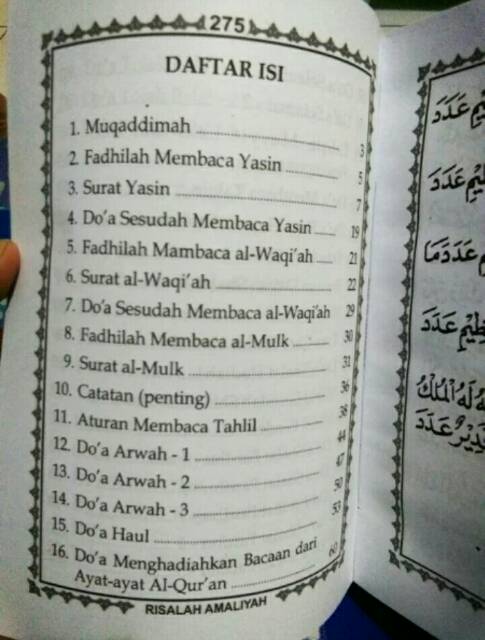 275
DAFTAR ISI
1. Muqaddimah 3
2. Fadhilah Membaca Yasin 5
3. Surat Yasin 7
4. Do'a Sesudah Membaca Yasin 19
5. Fadhilah Mambaca al-Waqi'ah 21
6. Surat al-Waqi'ah 22
7. Do'a Sesudah Membaca al-Waqi'ah 29
8. Fadhilah Membaca al-Mulk 30
9. Surat al-Mulk 31
10. Catatan (penting) 36
11. Aturan Membaca Tahlil 38
12. Do'a Arwah - 1 44
13. Do'a Arwah - 2 47
14. Do'a Arwah - 3 50
15. Do'a Haul 53
16. Do'a Menghadiahkan Bacaan dari
Ayat-ayat Al-Qur'an 60
RISALAH AMALIYAH
عَدَدَ
عَدَدَ
عَدَدَمَا
عَدَدَ
لَهُ الْمُلْكُ
عَدَدَ